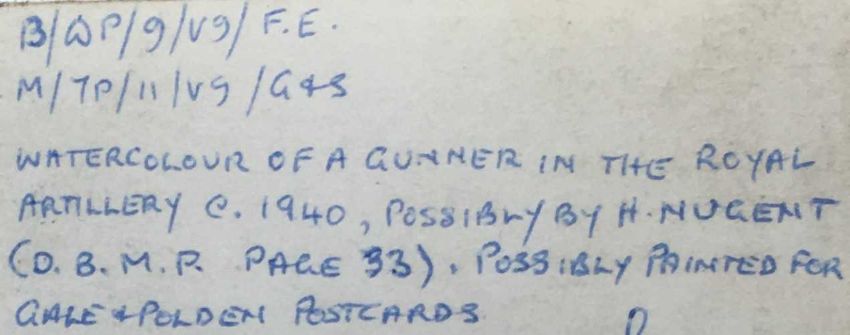 B/WP/9/VG/ F.E.
M/TP/11/VG/G&S
WATERCOLOUR OF A GUNNER IN THE ROYAL
ARTILLERY C. 1940, POSSIBLY BY H. NUGENT
(D.B.M.P. PAGE 33). POSSIBLY PAINTED FOR
GALE & POLDEN POSTCARDS